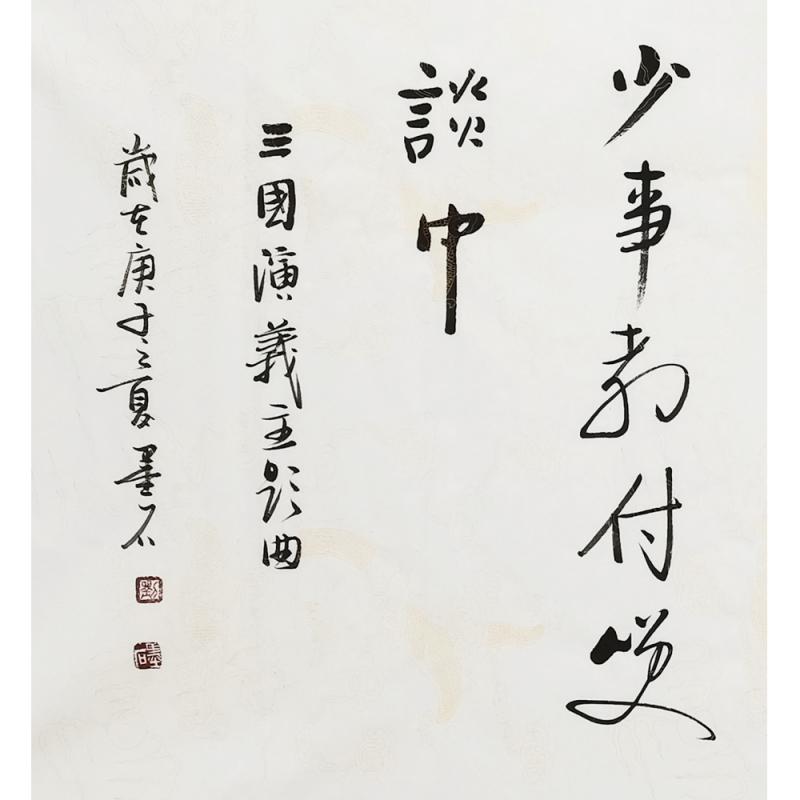 少事都付笑
談中
三國演義主題曲
歲在庚子之夏墨石